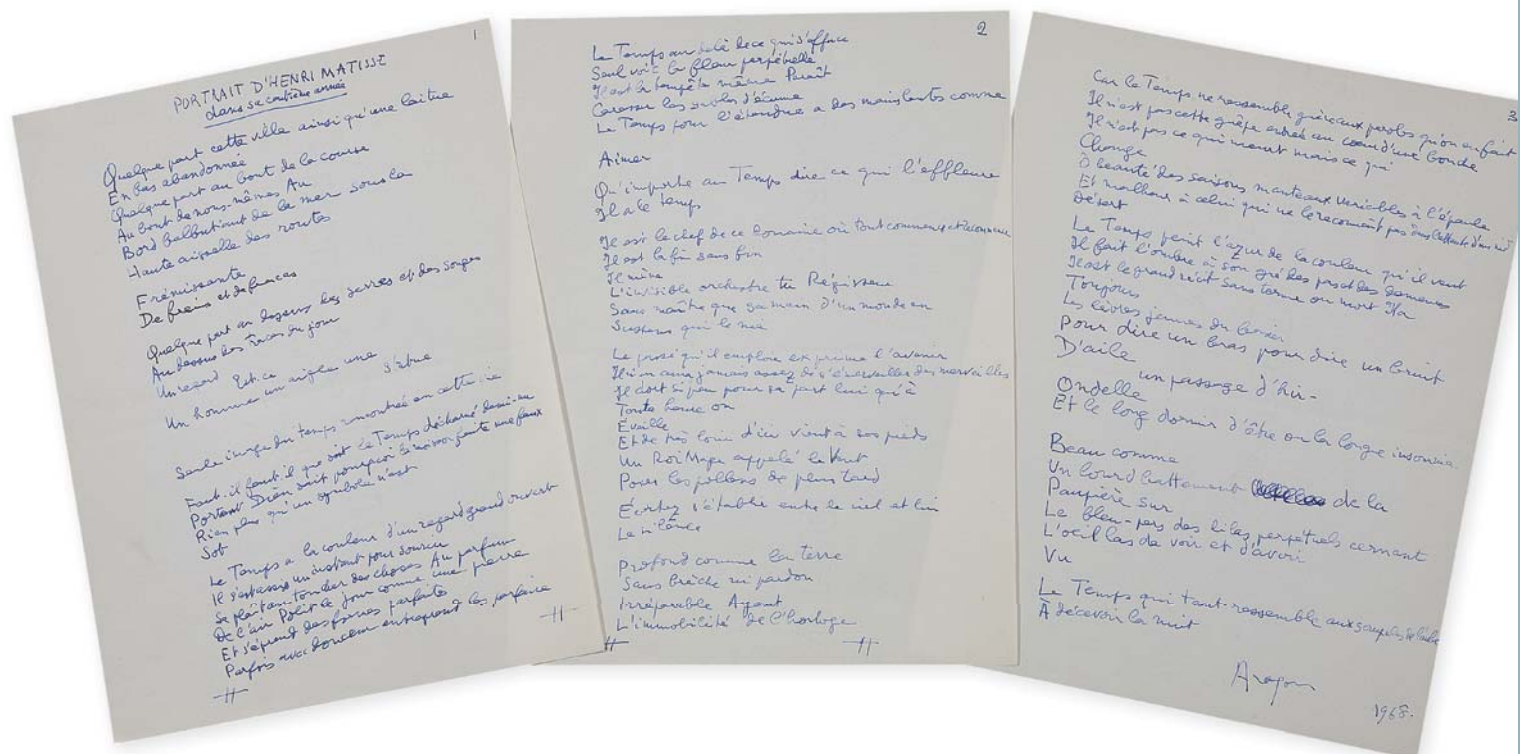 1
PORTRAIT D'HENRI MATISSE
dans sa centième année
Quelque part cette ville ainsi qu'une laitue
En bas abandonnée
Quelque part au bout de la course
Au bout de nous-mêmes Au
Bord balbutiant de la mer sous la
Haute aisselle des routes
Frémissante
De freins et de fracas
Quelque part au dessus les serres et des songes
Au dessus des traces du jour
Un regard Est-ce
Un homme un aigle une statue
Seule image du temps rencontrée en cette vie
Faut-il faut-il que soit le Temps décharné demi-nu
Portant Dieu sait pourquoi une faux
Rien plus qu'un symbole n'est
Sot
Le Temps a la couleur d'un regard grand ouvert
Il s'est assis un instant pour sourire
Se plaît au toucher des choses Au parfum
De l'air Polit le jour comme une pierre
Et s'éprend des formes parfaites
Parfois avec douceur entreprend les parfaire
2
Le Temps au delà de ce qui s'efface
Seul voit la fleur perpétuelle
Il est la tempête même Paraît
Caresser les d'écume
Le Temps pour l'étendue a des mains lentes comme
Aimer
Qu'importe au Temps dire ce qui l'effleure
Il a le temps
Il est le chef de ce domaine où tout commence et recommence
Il est la fin sans fin
Il mène
L'invisible orchestre tu Régisseur
Sans maître que sa main d'un monde en
Suspens qui le nie
Le prose qu'il emploie exprime l'avenir
Il n'en aura jamais assez de s'émerveiller des merveilles
Il dort si peu pour sa part lui qu'à
Toute heure on
Éveille
Et de très loin d'ici vient à ses pieds
Un Roi Mage appelé le Vent
Poser les pollens de plus tard
Écoutez s'établir entre le ciel et lui
Le silence
Profond comme la terre
Sans brèche ni pardon
Irréparable Ayant
L'immobilité de l'horloge
3
Car le Temps ne ressemble guère aux paroles qu'on en fait
Il n'est pas cette guêpe entrée au coeur d'une bouche
Il n'est pas ce qui meurt mais ce qui
Change
Ô beauté des saisons manteaux variables à l'épaule
Et malheur à celui qui ne le reconnaît pas dans l'attente d'un nid
Désert
Le Temps peint l'azur de la couleur qu'il veut
Il fait l'ombre à son gré des pas des
Il est le grand récit sans terme ou mort Il a
Toujours
Les lèvres jeunes du baiser
Pour dire un bras pour dire un bruit
D'aile
un passage d'hir-
Ondelle
Et le long dormir d'être ou la longue insomnie
Beau comme
Un lourd battement de la
Paupière sur
Le bleu-pers des lilas perpétuels cernant
L'oeil las de voir et d'avoir
Vu
Le Temps qui tant ressemble aux
À décevoir la nuit
Aragon
1968.